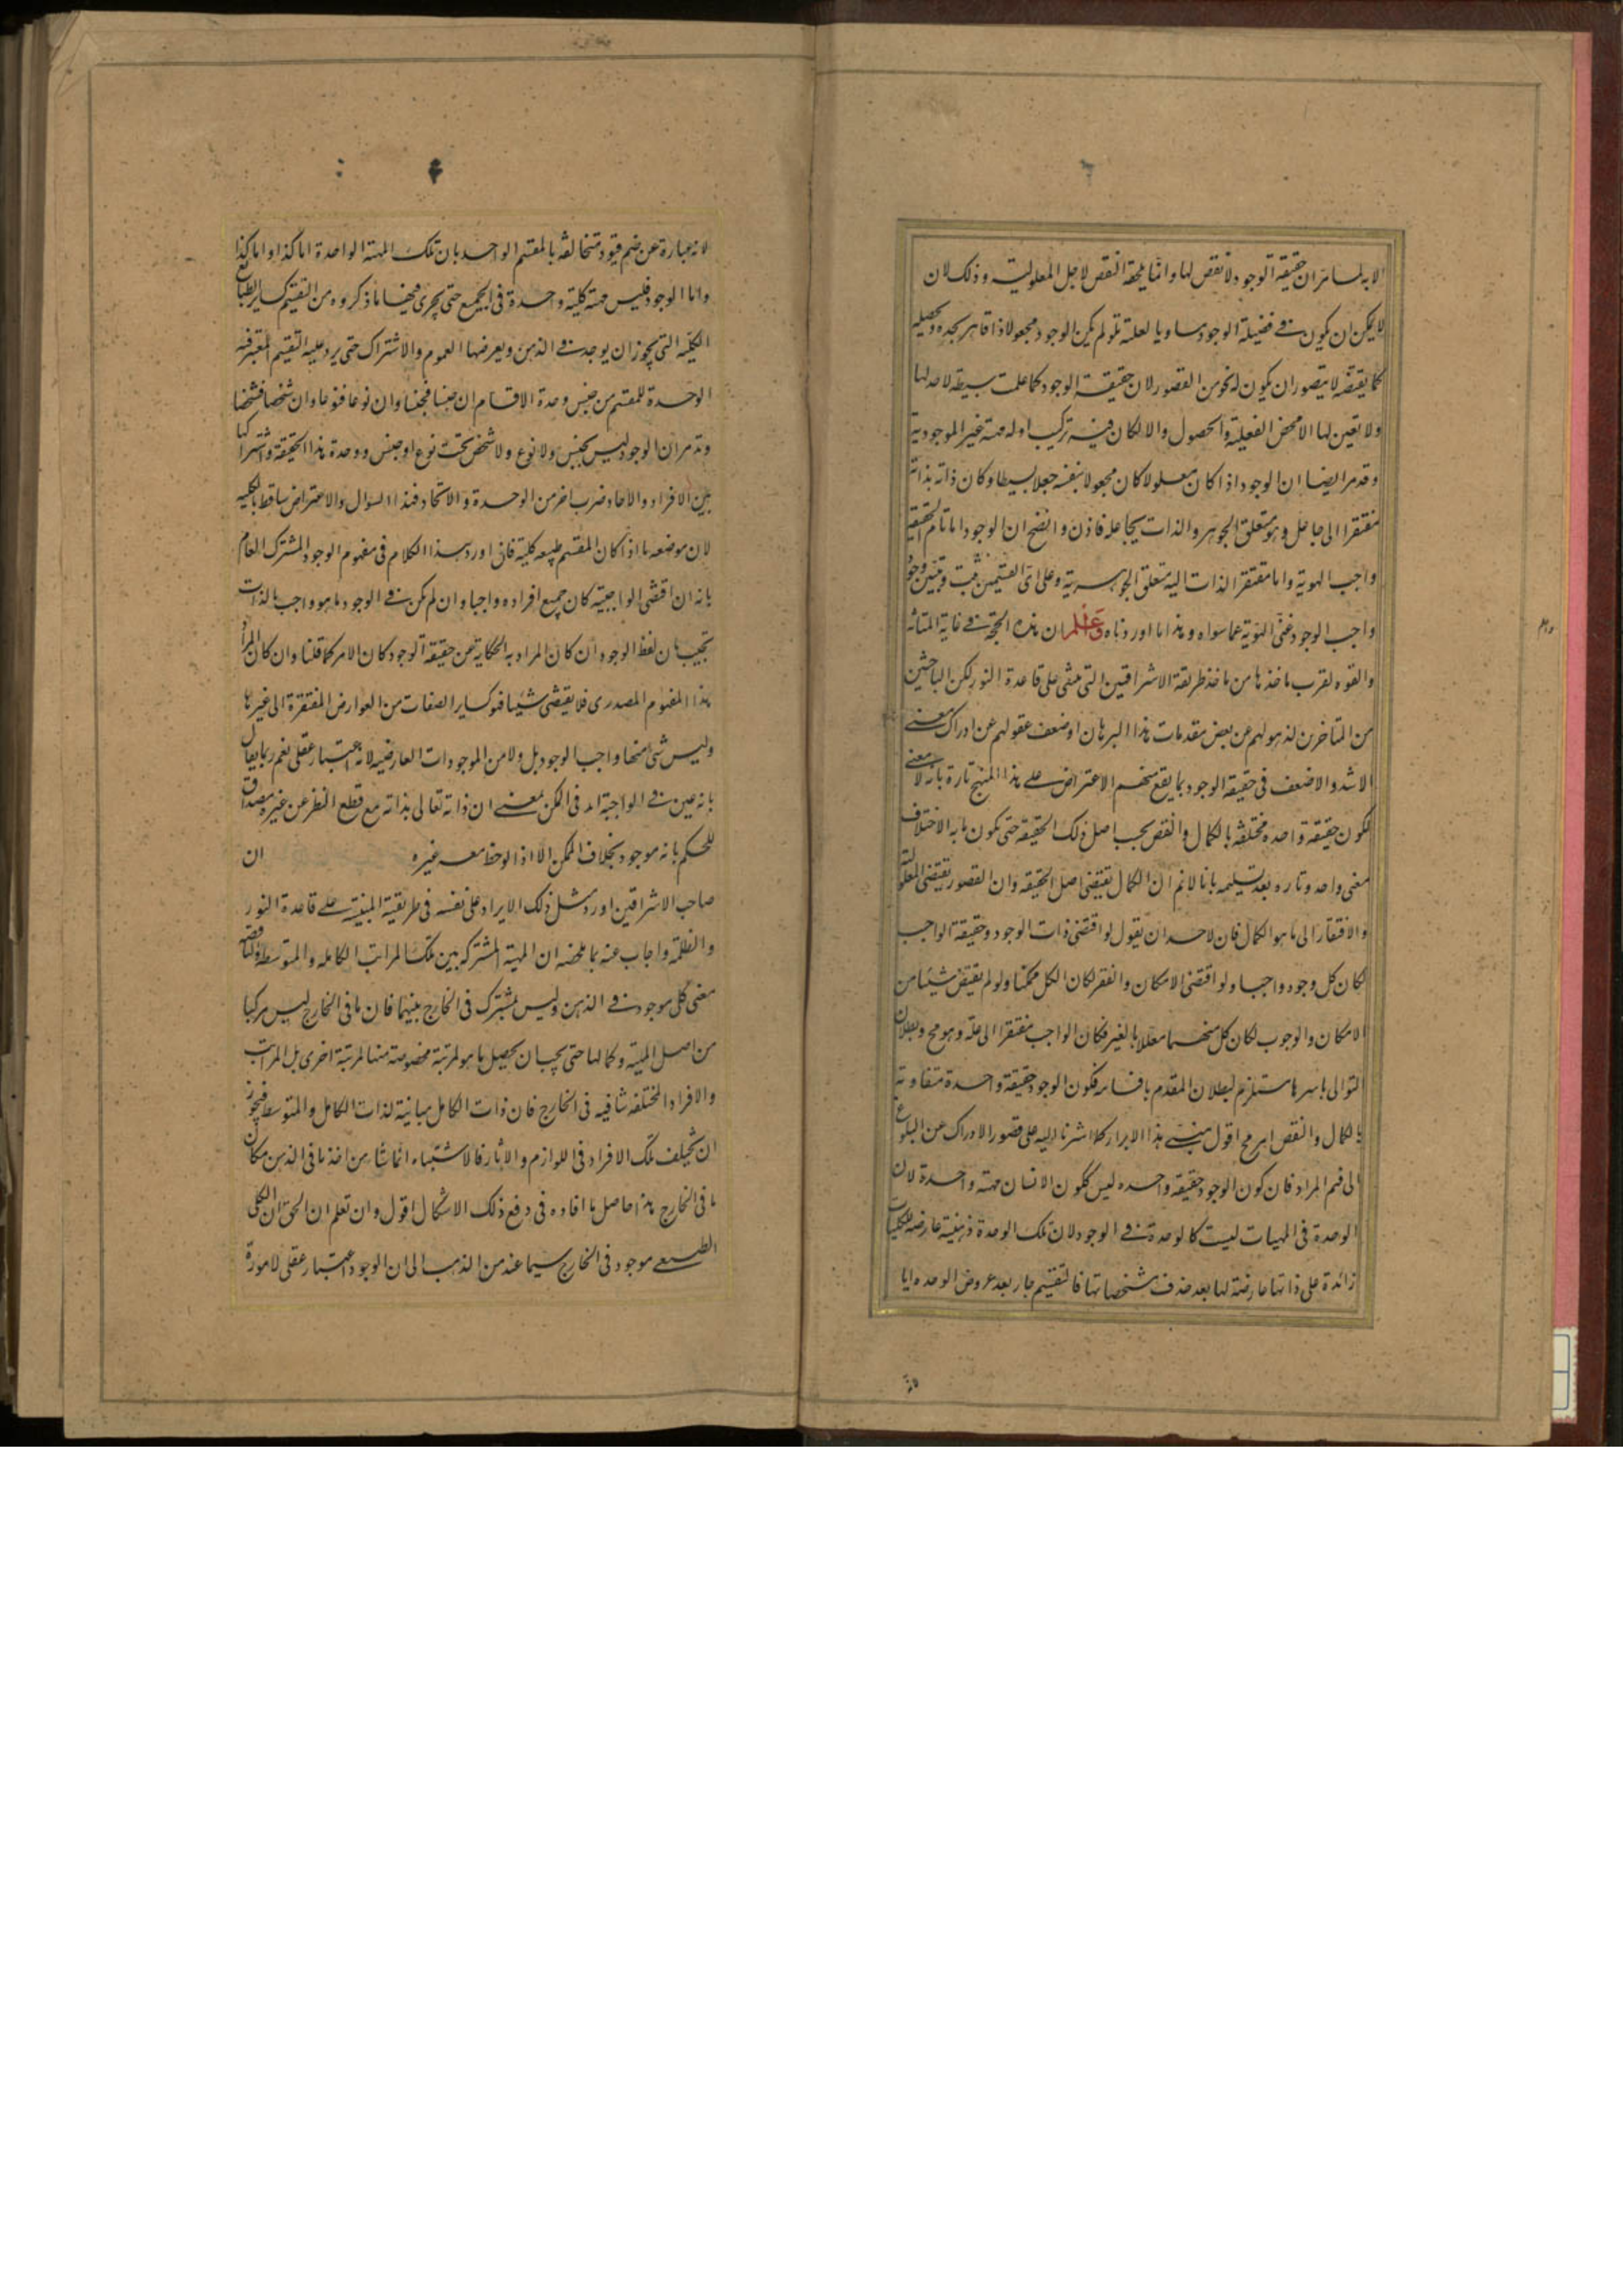 الا به لما مر ان حقيقة الوجود لا نقص لها وانما يلحقه النقص لاجل المعلولية وذلك لان
لا يمكن ان يكون فى فضيلة الوجود مساويا لعلته فلو لم يكن الوجود مجعولا ذا قاهر يجده ويحصله
كما يقتضه لا يتصور ان يكون له نحو من القصور لان حقيقة الوجود كما علمت بسيطة لا حد لها
ولا تعين لها الا محض الفعلية والحصول والا لكان فيه تركيب او له مهية غير الموجودية
وقد مر ايضا ان الوجود اذا كان معلولا كان مجعولا بنفسه جعلا بسيطا وكان ذاته بذاته
مفتقرا الى جاعل وهو متعلق الجوهر والذات بجاعله فاذن واتضح ان الوجود اما تام الحقيقة
واجب الهوية واما مفتقر الذات اليه متعلق الجوهرية وعلى اى القسمين ثبت وتبين وجود
واجب الوجود غنى الهوية عما سواه وهذا ما اوردناه واعلم ان هذه الحجة فى غاية المتانة
والقوه لقرب ماخذها من ماخذ طريقة الاشراقيين التى مبنى على قاعدة النور لكن الباحثين
من المتاخرين لذهولهم عن بعض مقدمات هذا البرهان او ضعف عقولهم عن ادراك معنى
الاشد والاضعف فى حقيقة الوجود بما يقع منهم الاعتراض على هذا المنهج تارة بانه لا معنى
لكون حقيقة واحده مختلفه بالكمال والنقص بحسب اصل ذلك الحقيقة حتى يكون ما به الاختلاف
معنى واحد وتاره بعد تسليمه بانا لانم ان الكمال يقتضى اصل الحقيقه وان القصور يقتضى المعلولية
والافتقار الى ما هو الكمال فان لاحد ان يقول لو اقتضى ذات الوجود وحقيقة الواجب
لكان كل وجود واجبا ولو اقتضى الامكان والفقر لكان الكل ممكنا ولو لم يقتض شيئا من
الامكان والوجوب لكان كل منهما معللا بالغير فكان الواجب مفتقرا الى علة وهو مح وبطلان
التوالى باسرها مستلزم لبطلان المقدم باقسامه فكون الوجود حقيقة واحدة متفاوتة
بالكمال والنقص امر مح اقول مبنى هذا الايراد كما اشرنا اليه على قصور الادراك عن البلوغ
الى فهم المراد فان كون الوجود حقيقه واحده ليس ككون الانسان مهية واحدة لان
الوحدة فى المهيات ليست كالوحدة فى الوجود لان تلك الوحدة ذهنية عارضة للكليات
زائدة على ذاتها عارضة لها بعد حذف مشخصاتها فالتقسيم جار بعد عروض الوحده اياها
لانه عبارة عن ضم قيود متخالفه بالمقسم الواحد بان تلك المهية الواحدة اما كذا واما كذا
واما الوجود فليس مهية كلية واحدة فى الجميع حتى يجرى فيها ما ذكروه من التقسيم كساير الطبايع
الكليه التى يجوز ان يوجد فى الذهن ويعرضها العموم والاشتراك حتى يرد عليه التقسيم المعتبر فيه
الوحدة للمقسم من جنس وحدة الاقسام ان جنسا فجنسا وان نوعا فنوعا وان شخصا فشخصا
وقد مر ان الوجود ليس بجنس ولا نوع ولا شخص تحت نوع او جنس ووحدة هذا الحقيقة واشتراكها
بين الافراد والاحاد ضرب اخر من الوحدة والاتحاد فهذا السؤال والاعتراض ساقط بالكليه
لان موضعه ما اذا كان المقسم طبيعه كلية فانى اورد هذا الكلام فى مفهوم الوجود المشترك العام
بانه ان اقتضى الواجبية كان جميع افراده واجبا وان لم يكن فى الوجود ما هو واجب بالذات
يجيب بان لفظ الوجود ان كان المراد به الحكاية عن حقيقة الوجود كان الامر كما قلنا وان كان المراد
هذا المفهوم المصدرى فلا يقتضى شيئا فهو كساير الصفات من العوارض المفتقرة الى غيرها
وليس شئ منها واجب الوجود بل ولا من الموجودات العارضيه لانه اعتبار عقلى نعم ربما يقال
بانه عين فى الواجبية امد فى الكن بمعنى ان ذاته تعالى بذاته مع قطع النظر عن غيره مصداق
للحكم بانه موجود بخلاف الممكن الا اذا لوحظ معه غيره ان
صاحب الاشراقيين اورد مثل ذلك الايراد على نفسه فى طريقية المبنية على قاعدة النور
والظلمة واجاب عنه بما ملخصه ان المهية المشتركه بين تلك المراتب الكامله والمتوسطه والناقصه
معنى كلى موجود فى الذهن وليس بمشترك فى الخارج بينهما فان ما فى الخارج ليس مركبا
من اصل المهية وكمالها حتى يجب ان يحصل ما هو لمرتبة مخصوصة منها لمرتبة اخرى بل المراتب
والافراد المختلفه شافيه فى الخارج فان ذات الكامل مباينة لذات الكامل والمتوسط فيجوز
ان يختلف تلك الافراد فى اللوازم والاثار فالاشتباه انما نشا من اخذ ما فى الذهن مكان
ما فى الخارج هذا حاصل ما افاده فى دفع ذلك الاشكال اقول وان تعلم ان الحق ان الكلى
الطبيعى موجود فى الخارج سيما عند من الذهب الى ان الوجود اعتبار عقلى لا صورة